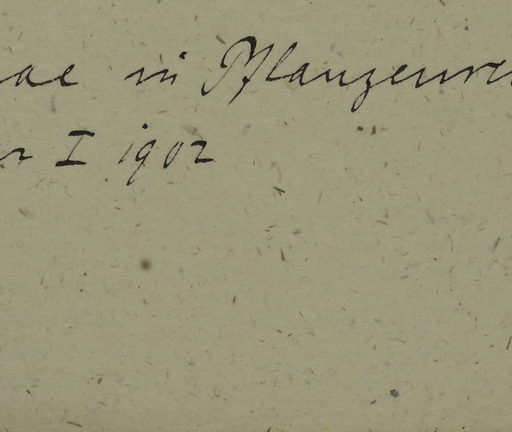 ae in Pflanzenre
r I 1902